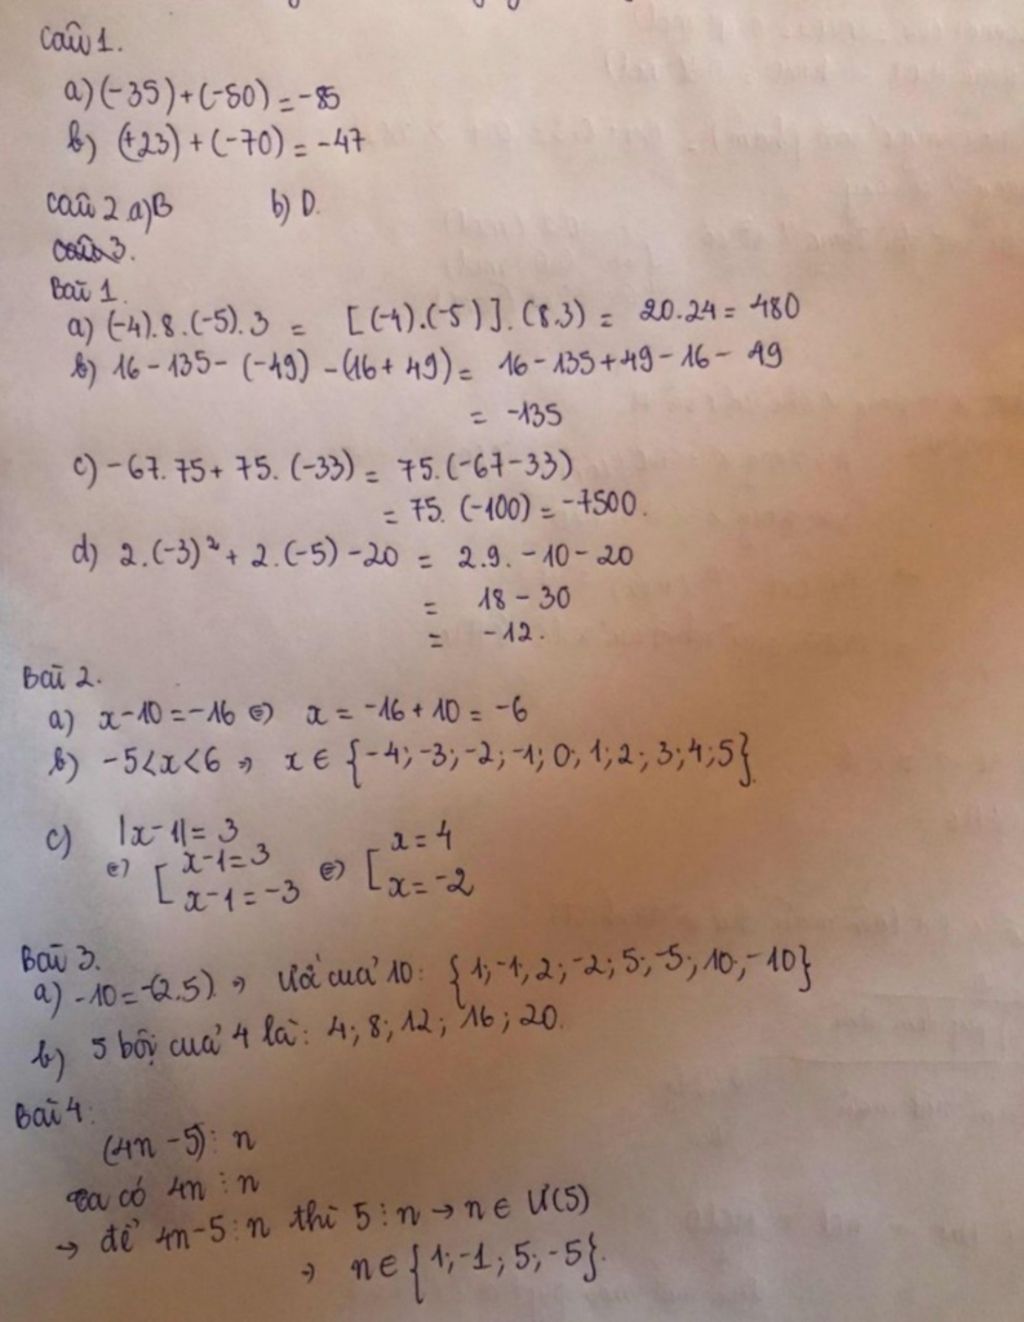 Câu 1.
a) (-35) + (-50) = -85
b) (+23) + (-70) = -47
Câu 2 a) B b) D.
Câu 3.
Bài 1.
a) (-4).8.(-5).3 = [(-4).(-5)].(8.3) = 20.24 = 480
b) 16 - 135 - (-49) - (16 + 49) = 16 - 135 + 49 - 16 - 49
= -135
c) -67.75 + 75.(-33) = 75.(-67-33)
= 75.(-100) = -7500.
d) 2.(-3)² + 2.(-5) - 20 = 2.9. - 10 - 20
= 18 - 30
= -12.
Bài 2.
a) x - 10 = -16 ⇔ x = -16 + 10 = -6
b) -5 < x < 6 ⇒ x ∈ {-4; -3; -2; -1; 0; 1; 2; 3; 4; 5}.
c) |x - 1| = 3
⇔ [ x - 1 = 3 ⇔ [ x = 4
x - 1 = -3 x = -2
Bài 3.
a) -10 = -(2.5). ⇒ Ước của 10: {1; -1; 2; -2; 5; -5; 10; -10}
b) 5 bội của 4 là: 4; 8; 12; 16; 20.
Bài 4:
(4n - 5) ⋮ n
ta có 4n ⋮ n
→ để 4n - 5 ⋮ n thì 5 ⋮ n → n ∈ Ư(5)
⇒ n ∈ {1; -1; 5; -5}.